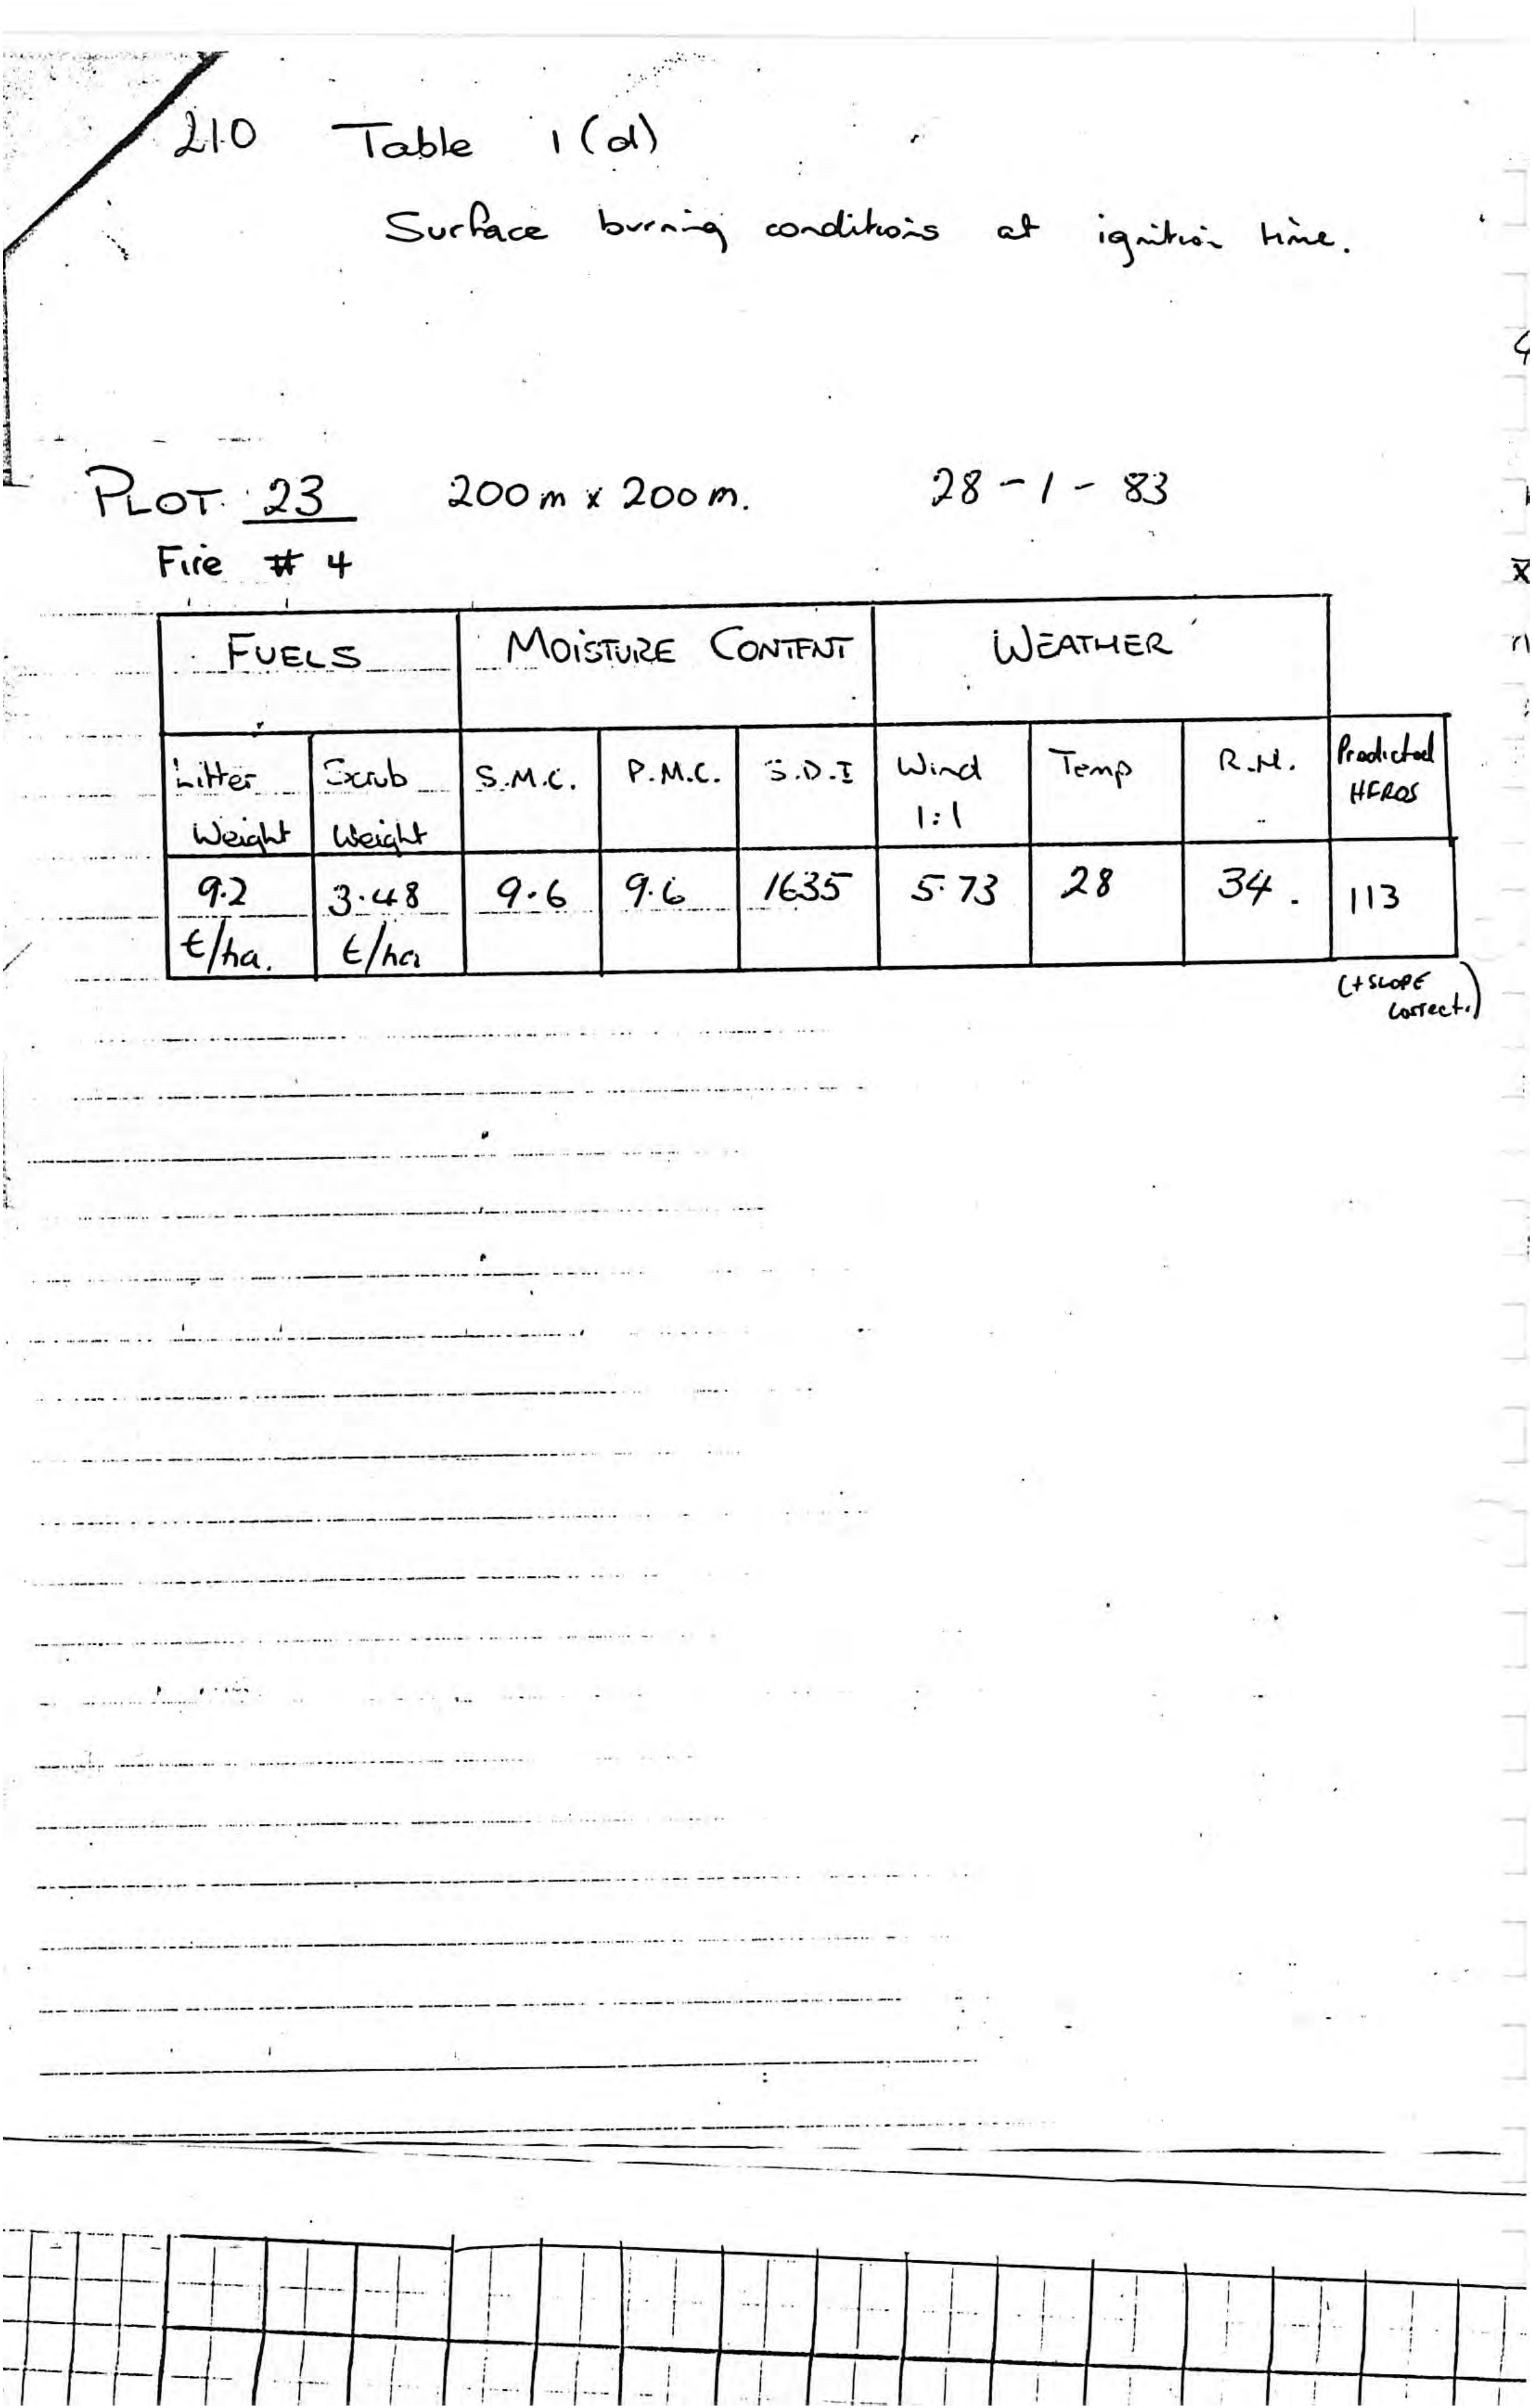 210 Table 1(d)
Surface burning conditions at ignition time.
PLOT 23 200m x 200m. 28-1-83
Fire # 4
FUELS MOISTURE CONTENT WEATHER
Litter Weight Scrub Weight S.M.C. P.M.C. S.D.I Wind 1:1 Temp R.H. Predicted HFROS
9.2 t/ha. 3.48 t/ha 9.6 9.6 1635 5.73 28 34. 113
(+SLOPE
correct.)